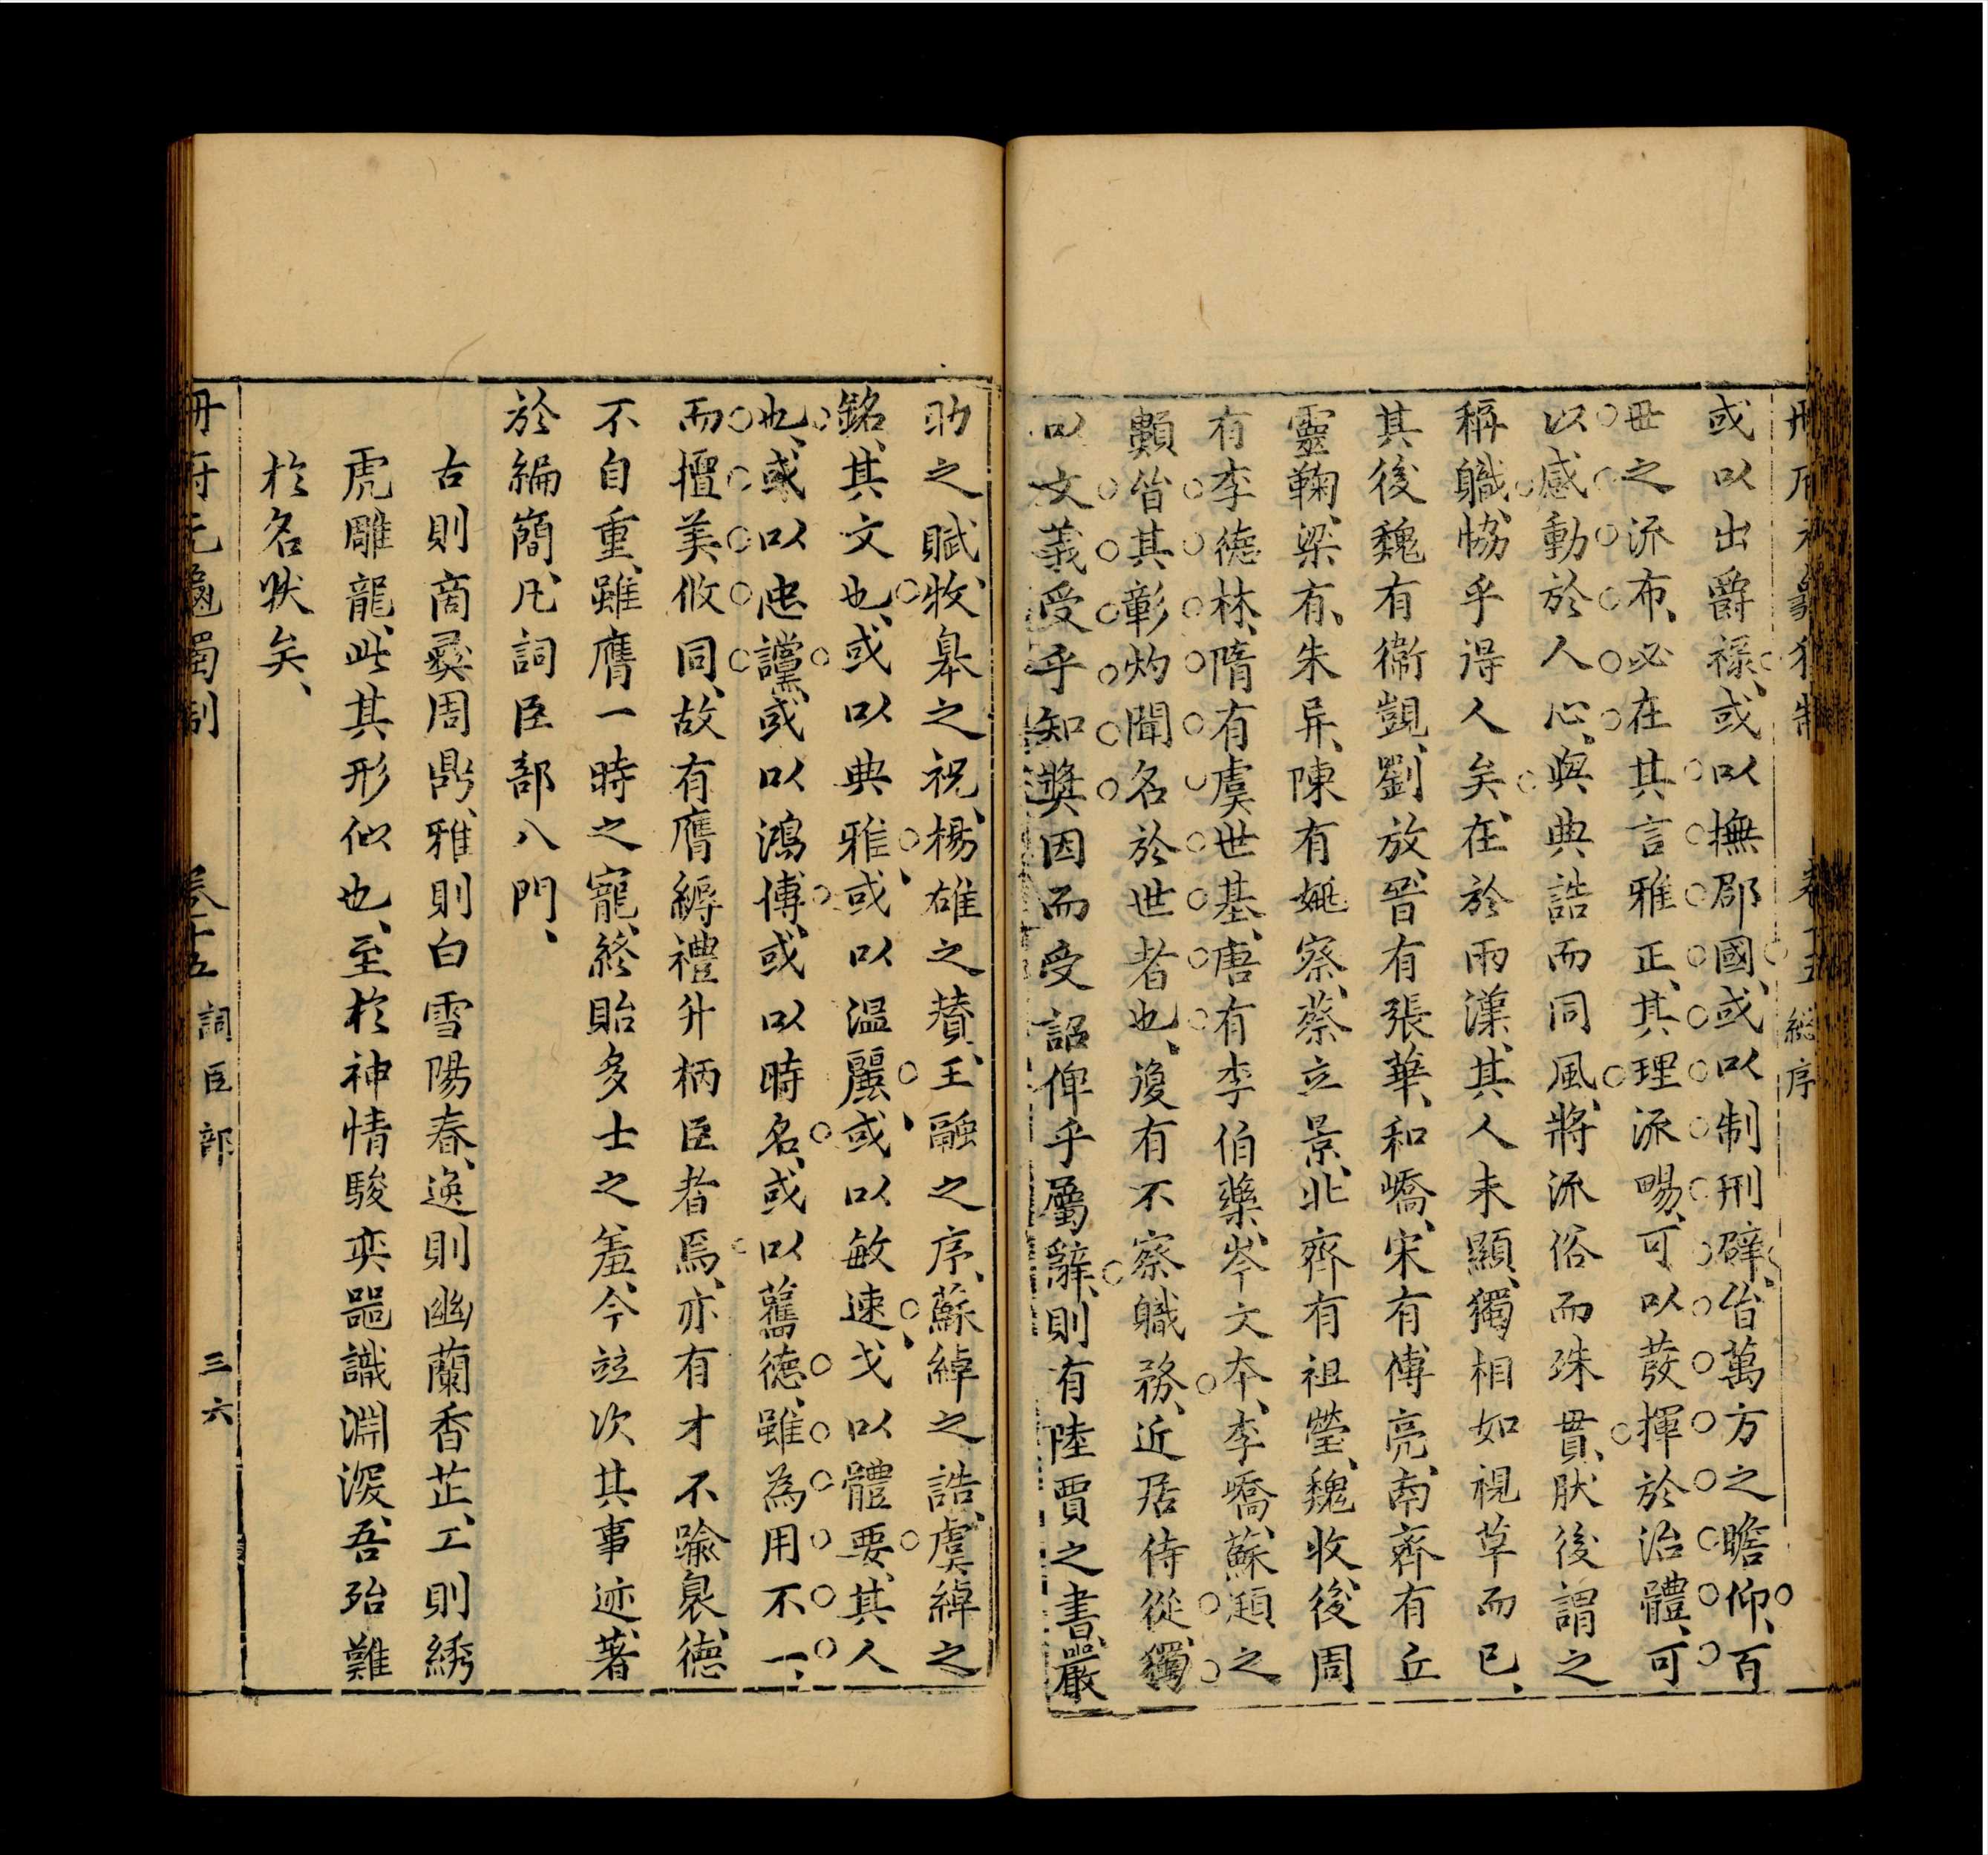 冊府元龜獨制 卷十五 總序
或以出爵祿、或以撫郡國、或以制刑辟、皆萬方之瞻仰、百
毌之派布、必在其言雅正、其理派暢、可以發揮於治體、可
以感動於人心、與典誥而同風、將派俗而殊貫、肰後謂之
稱職、恊乎得人矣、在於兩漢、其人未顯、獨相如視草而已、
其後魏有衞覬、劉放、晉有張華、和嶠、宋有傅亮、南齊有丘
靈鞠、梁有、朱异、陳有姚察、蔡立景、北齊有祖瑩、魏收、後周
有李德林、隋有虞世基、唐有李伯藥、岑文本、李嶠、蘇頲之
顥皆其彰灼聞名於世者也、復有不察職務、近居侍從、獨
以文義受乎知獎因而受詔俾乎屬辭、則有陸賈之書、嚴
助之賦、牧臯之祝、楊雄之賛、王融之序、蘇綽之誥、虞綽之
銘、其文也、或以典雅、或以温麗、或以敏速、戈以體要、其人
也、或以忠讜、或以鴻博、或以時名、或以舊德、雖為用不一、
而擅美攸同、故有膺縟禮升柄臣者焉、亦有才不踰衆、德
不自重、雖膺一時之寵、終貽多士之羞、今竝次其事迹、著
於編簡、凡詞臣部八門、
古則商彝周鼎、雅則白雪陽春、逸則幽蘭香芷、工則綉
虎雕龍、此其形似也、至於神情駿奕噐識淵深、吾殆難
於名狀矣、
冊府元龜獨制 卷十五 詞臣部 三六